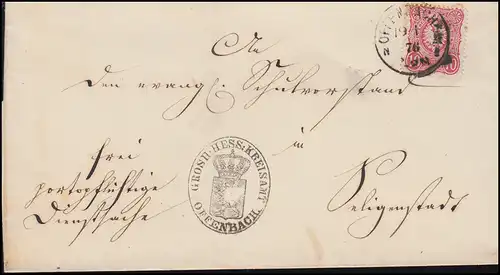 OFFENBACH
19 1
76
An
den evangl. Schulvorstand
frei
portopflichtige
Dienstsache
GROSH: HESS: KREISAMT
OFFENBACH.
in
Seligenstadt